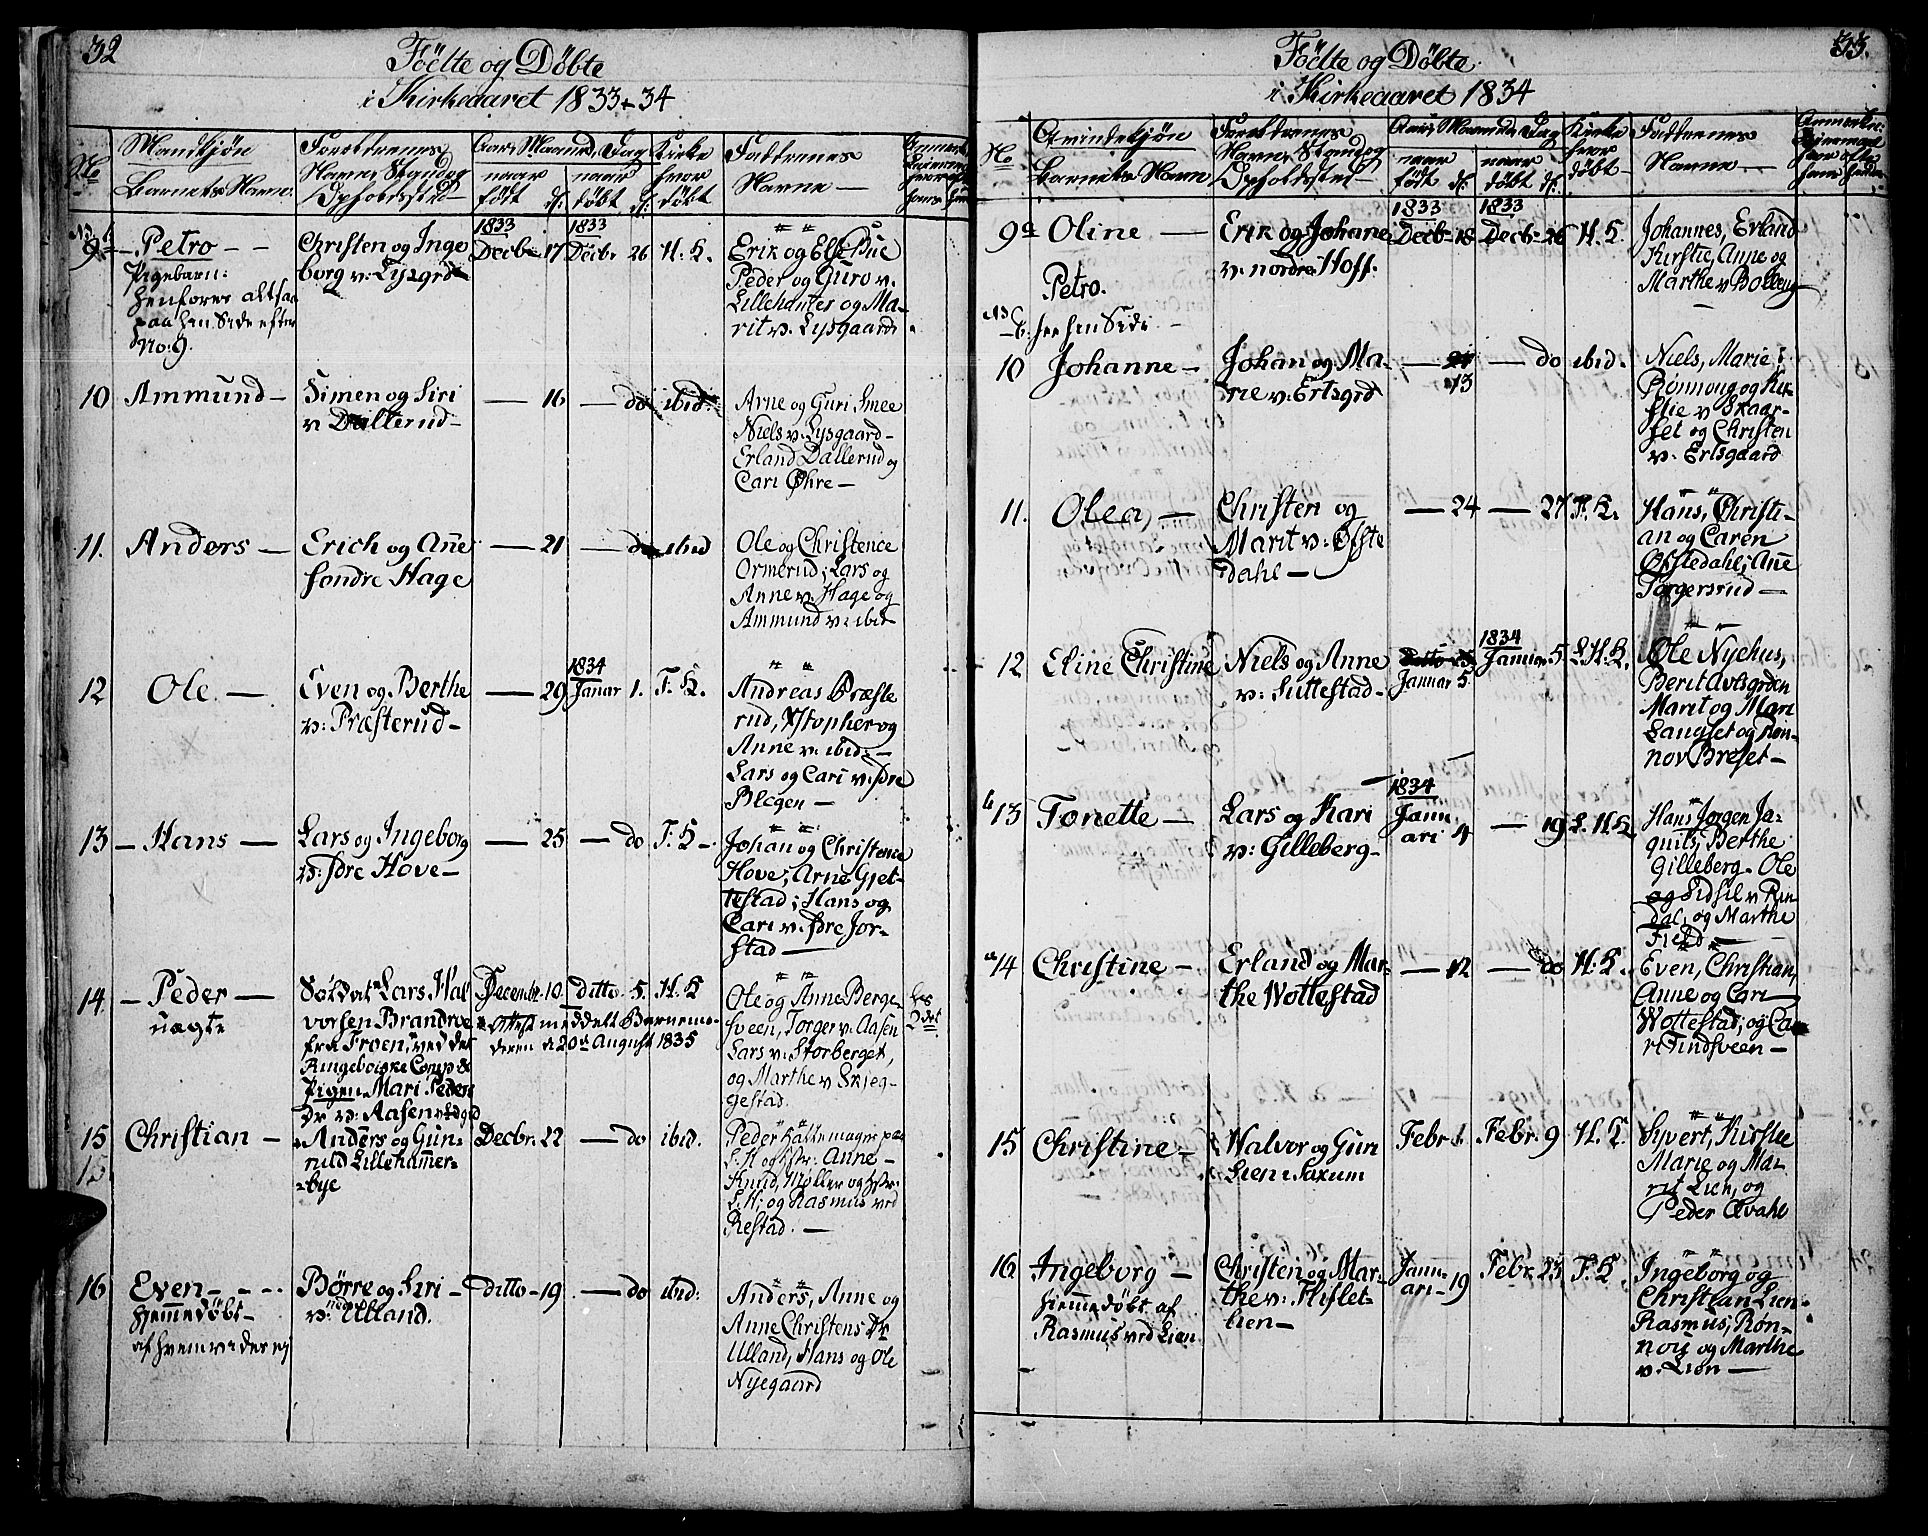 32
Födte og Döbte
i Kirkeaaret 1833-34
No
Mandkjön
Barnets Navn.
Forældrenes
Navn, Stand og
Opholdssted
Aar, Maaned, Dag
naar
födt d:
naar
döbt d:
Kirke
hvor
döbt
Faddrenes
Navne —
NB. b
9 — Petro — —
Pigebarn:
henföres altsaa
paa hin Side efter
No: 9.
Christen og Inge
borg v: Lysgrd
1833
Decbr 17
1833
Decbr 26
H. K.
Erik og Else Bue
Peder og Guro v.
Lillehamer og Ma-
rit v: Lysgaard
10 Ammund —
Simen og Siri
v Dallerud —
— 16
— do
ibid:
Arne og Guri Smee
Niels v: Lysgaard —
Erland Dallerud og
Cari Øhre —
11. Anders —
Erich og Ane
söndre Hage
— 21
— do
ibid
Ole og Christence
Ormerud; Lars og
Anne v: Hage og
Ammund v: ibid
12 Ole. —
Even og Berthe
v: Præsterud —
— 29
1834
Januar 1.
F. K.
Andreas Præste
rud, Xstopher og
Anne v: ibid: —
Lars og Cari v: sdre
Blegen —
13 — Hans —
Lars og Ingeborg
v: sdre Hove —
— 25
— do
F. K —
Johan og Christence
Hove; Arne Gjet-
testad; Hans og
Cari v: sdre Jor-
stad —
14. — Peder —
uægte
Soldat Lars Hal
vorsen Brandvo
fra Froen, ved det
Ringeboiske Comp &
Pigen Mari Peders
Dr v: Aasen
Decembr. 10.
ditto 5.
H. K
Attest meddelt Barnemo-
deren d 20de August 1835
Ole og Anne Berge-
sveen, Torger v: Aasen
Lars v: Storberget,
og Marthe v Skjeg-
gestad.
15 Christian —
15
Anders og Gun-
nild Lillehammer-
bye
Decbr. 22
— do
ibid.
Peder Hattemager paa
L. H og Hstr: Anne —
Knud Møller og Hstr:
L. H; og Rasmus ved
Restad. —
16 Even — — —
hjemmedöbt —
af hvem vides ej
Börre og Siri —
v: Ulland.
ditto — 19
— do
ibid:
Anders, Anne og
Anne Christens Dr
Ulland, Hans og Ole
Nyegaard
33.
Födte og Döbte
i Kirkeaaret 1834
No
Qvindekjön
Barnets Navn
Forældrenes
Navn, Stand og
Opholdssted —
Aar, Maaned, Dag
naar
födt d:
naar
döbt d:
Kirke
hvor
döbt —
Faddrenes
Navne. —
9a Oline —
Petro.
Erik og Johane
v: nordre Hoff.
1833
Decb- 18
1833
Decb- 26
H. K.
Johannes, Erland
Kirstie, Anne og
Marthe v Bolleng
NB
b. see hin Side —
10 Johanne —
Johan og Ma-
rie v: Ertsgrd
— 21
13
— do
ibid.
Niels, Marie,
Ronnoug og Kir-
stie v Skaar-
set og Christen
v: Ertsgaard
11. Olea, —
Christen og
Marit v: Øfste
dahl —
— 24
— 27
F. K.
Hans, Christi-
an og Caren
Øfstedahl; Ane
Torgersrud —
12 Eline Christine
Niels og Anne
v: Suttestad —
Januar 5
1834
Januar 5.
L. H. K.
Ole Nyehus,
Berit Avlsgrden
Marit og Mari
Langset og Ron-
nov Breset —
13 Tonette —
Lars og Kari
v: Gilleberg —
1834
Janu-
ari 4
— 19
L. H K
Hans Jorgen Ja-
quits; Berthe
Gilleberg. Ole
og Sidsil v Rin
dal, og Marthe
Field —
14 Christine —
Erland og Mar-
the Wottestad
— 12
— do
H. K.
Even, Christian,
Anne og Cari
Wottestad; og Ca
ri Tindsveen —
15 Christine —
Walvor og Guri
Lien i Saxum
Febr 1.
Febr. 9
H. K.
Syvert, Kirstie
Marie og Ma-
rit Lien, og
Peder Qvahl
16 Ingeborg —
hjemmedöbt af
Rasmus ved Lien
Christen og Mar-
the v: Hislet-
lien —
Janu-
ari — 19
Febr. 23
F. K
Ingeborg og
Christian Lien
Rasmus; Ron-
nou og Marthe
v: Lien —